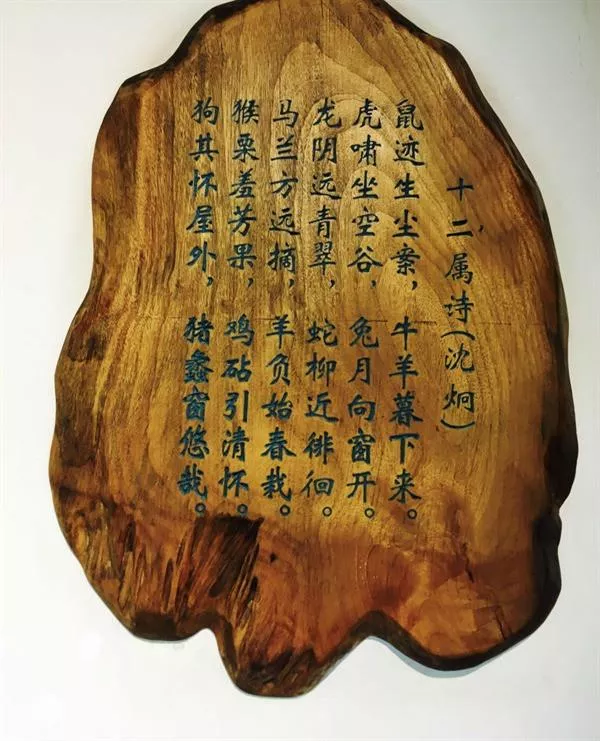 十二属诗(沈炯)
鼠迹生尘案，牛羊暮下来。
虎啸坐空谷，兔月向窗开。
龙阴远青翠，蛇柳近徘徊。
马兰方远摘，羊负始春栽。
猴栗羞芳果，鸡砧引清怀。
狗其怀屋外，猪蠡窗悠哉。